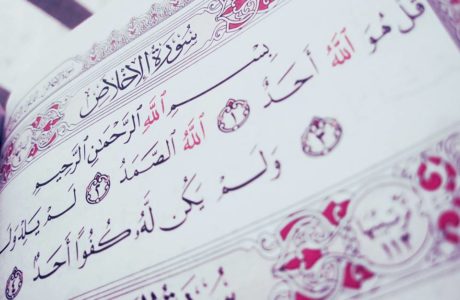 سُورَةُ الإِخْلَاصِ
بِسْمِ ٱللَّهِ ٱلرَّحْمَٰنِ ٱلرَّحِيمِ
قُلْ هُوَ ٱللَّهُ أَحَدٌ ١ ٱللَّهُ ٱلصَّمَدُ ٢ لَمْ يَلِدْ
٣ وَلَمْ يَكُن لَّهُۥ كُفُوًا أَحَدٌۢ ٤
سُورَةُ
١١٣